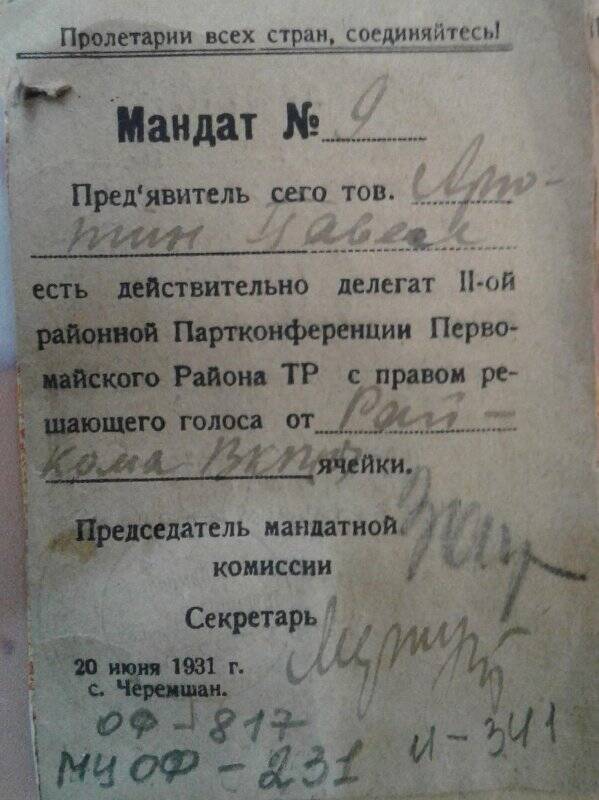 Пролетарии всех стран, соединяйтесь!
Мандат № 9
Пред'явитель сего тов.
есть действительно делегат II-ой
районной Партконференции Перво-
майского Района ТР с правом ре-
шающего голоса от Рай-
кома ВКП(б) ячейки.
Председатель мандатной
комиссии
Секретарь
20 июня 1931 г.
с. Черемшан.
ОФ-817
МЧ ОФ - 231 И-341